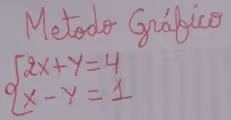 Metodo Gráfico
2x + y = 4
x - y = 1